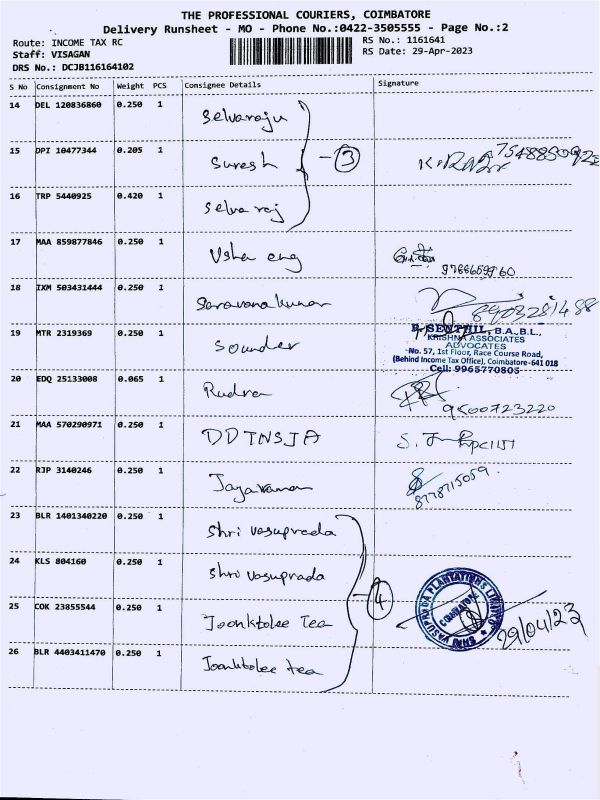 THE PROFESSIONAL COURIERS, COIMBATORE
Delivery Runsheet - MO - Phone No.:0422-3505555 - Page No.:2
Route: INCOME TAX RC RS No.: 1161641
Staff: VISAGAN RS Date: 29-Apr-2023
DRS No.: DCJB116164102
S No Consignment No Weight PCS Consignee Details Signature
14 DEL 120836860 0.250 1 Selvaraju
15 DPI 10477344 0.205 1 Suresh - 3
16 TRP 5440925 0.420 1 Selva raj
17 MAA 859877846 0.250 1 Usha eng 9786659960
18 IXM 503431444 0.250 1 Saravana kumar 8903281488
19 MTR 2319369 0.250 1 Sounder
SENTHIL, B.A.,B.L.,
KRISHNA ASSOCIATES
ADVOCATES
No. 57, 1st Floor, Race Course Road,
(Behind Income Tax Office), Coimbatore-641 018
Cell: 9965770805
20 EDQ 25133008 0.065 1 Rudra 9500723220
21 MAA 570290971 0.250 1 DDTNSJA
22 RJP 3140246 0.250 1 Jayaraman 8778715059
23 BLR 1401340220 0.250 1 Shri vasuprada
24 KLS 804160 0.250 1 Shri vasuprada - 4
25 COK 23855544 0.250 1 Joonktolee Tea
SHRI VASUPRADA PLANTATIONS LIMITED
COIMBATORE
29/04/23
26 BLR 4403411470 0.250 1 Joonktolee tea